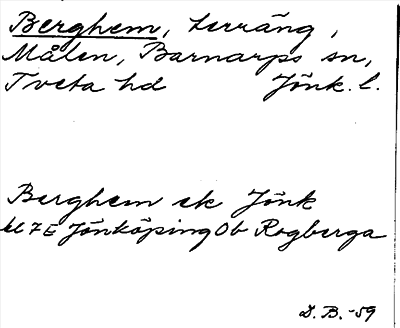 Berghem, terräng,
Målen, Barnarps sn,
Tveta hd Jönk. l.
Berghem ek Jönk
bl 7E Jönköping Ob Rogberga
D. B. -59